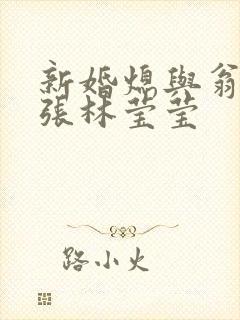 新婚熄與翁
張林莹莹
路小火